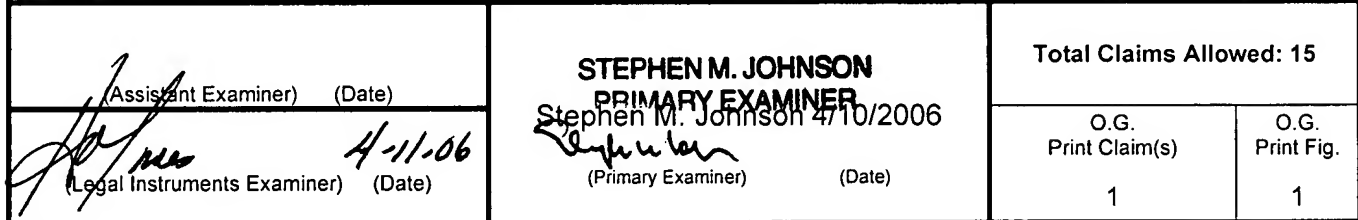 (Assistant Examiner) (Date)
4-11-06
(Legal Instruments Examiner) (Date)
STEPHEN M. JOHNSON
PRIMARY EXAMINER
Stephen M. Johnson 4/10/2006
(Primary Examiner) (Date)
Total Claims Allowed: 15
O.G.
Print Claim(s)
1
O.G.
Print Fig.
1